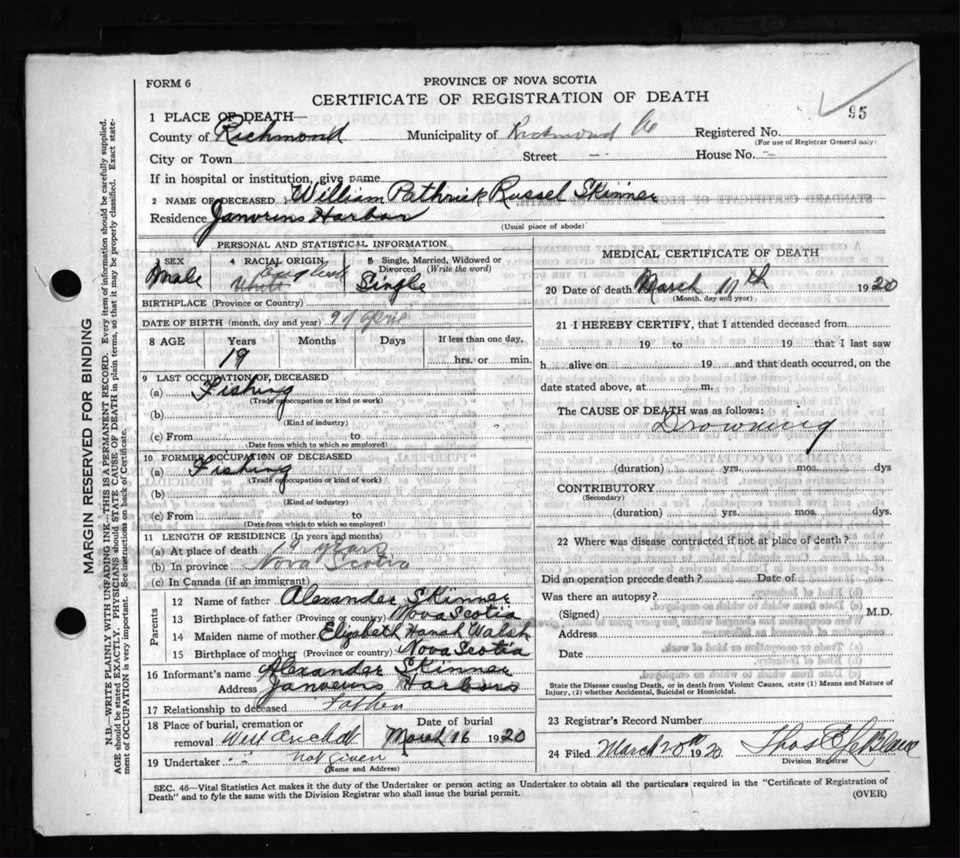 95
FORM 6
PROVINCE OF NOVA SCOTIA
CERTIFICATE OF REGISTRATION OF DEATH
1 PLACE OF DEATH—
County of Richmond Municipality of Richmond Co Registered No.
(For use of Registrar General only)
City or Town Street — House No. —
If in hospital or institution, give name
2 NAME OF DECEASED William Pathrick Russel Skinner
Residence Janvrins Harbor
(Usual place of abode)
PERSONAL AND STATISTICAL INFORMATION
3 SEX 4 RACIAL ORIGIN 5 Single, Married, Widowed or Divorced (Write the word)
Male White English Single
BIRTHPLACE (Province or Country)
DATE OF BIRTH (month, day and year)
8 AGE Years Months Days If less than one day,
19 hrs. or min.
9 LAST OCCUPATION OF DECEASED
(a) Fishing
(Trade or occupation or kind or work)
(b)
(Kind of industry)
(c) From to
(Date from which to which so employed)
10 FORMER OCCUPATION OF DECEASED
(a) Fishing
(Trade or occupation or kind or work)
(b)
(Kind of industry)
(c) From to
(Date from which to which so employed)
11 LENGTH OF RESIDENCE (In years and months)
(a) At place of death 19 years
(b) In province Nova Scotia
(c) In Canada (if an immigrant)
Parents
12 Name of father Alexander Skinner
13 Birthplace of father (Province or country) Nova Scotia
14 Maiden name of mother Elizabeth Hanah Walsh
15 Birthplace of mother (Province or country) Nova Scotia
16 Informant's name Alexander Skinner
Address Janvrins Harbors
17 Relationship to deceased Father
18 Place of burial, cremation or removal Date of burial
West Arichat March 16 1920
19 Undertaker " " not given
(Name and Address)
MEDICAL CERTIFICATE OF DEATH
20 Date of death March 11th 1920
(Month, day and year)
21 I HEREBY CERTIFY, that I attended deceased from
19 to 19 that I last saw
h alive on 19 and that death occurred, on the
date stated above, at m.
The CAUSE OF DEATH was as follows:
Drowning
(duration) yrs. mos. dys
CONTRIBUTORY
(Secondary)
(duration) yrs. mos. dys.
22 Where was disease contracted if not at place of death?
Did an operation precede death? Date of
Was there an autopsy?
(Signed) M.D.
Address
Date
State the Disease causing Death, or in death from Violent Causes, state (1) Means and Nature of
Injury, (2) whether Accidental, Suicidal or Homicidal.
23 Registrar's Record Number
24 Filed March 20th 1920 Thos E LeBlanc
Division Registrar
SEC. 46—Vital Statistics Act makes it the duty of the Undertaker or person acting as Undertaker to obtain all the particulars required in the "Certificate of Registration of
Death" and to fyle the same with the Division Registrar who shall issue the burial permit. (OVER)
MARGIN RESERVED FOR BINDING
N.B.—WRITE PLAINLY WITH UNFADING INK—THIS IS A PERMANENT RECORD. Every item of information should be carefully supplied.
AGE should be stated EXACTLY. PHYSICIANS should STATE CAUSE OF DEATH in plain terms, so that it may be properly classified. Exact statement
of OCCUPATION is very important. See instructions on back of Certificate.